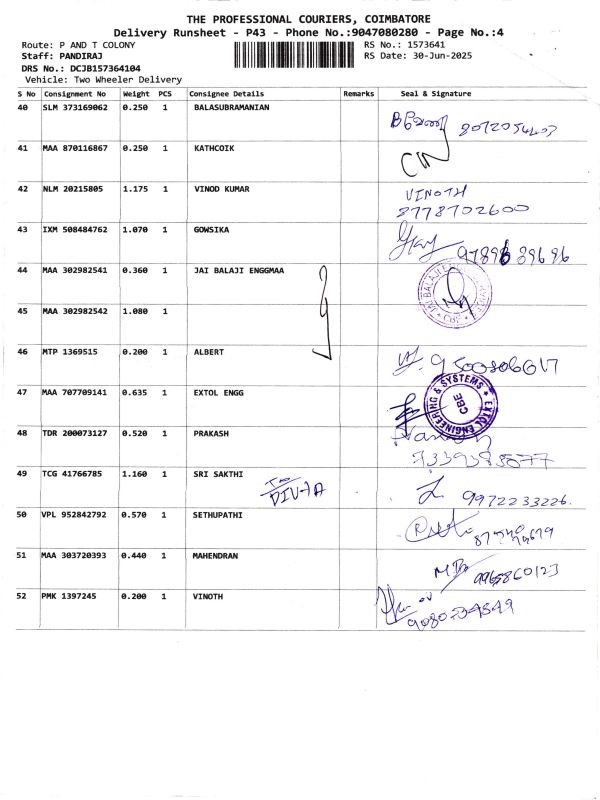 THE PROFESSIONAL COURIERS, COIMBATORE
Delivery Runsheet - P43 - Phone No.:9047080280 - Page No.:4
Route: P AND T COLONY RS No.: 1573641
Staff: PANDIRAJ RS Date: 30-Jun-2025
DRS No.: DCJB157364104
Vehicle: Two Wheeler Delivery
S No Consignment No Weight PCS Consignee Details Remarks Seal & Signature
40 SLM 373169062 0.250 1 BALASUBRAMANIAN
41 MAA 870116867 0.250 1 KATHCOIK
42 NLM 20215805 1.175 1 VINOD KUMAR VINOTH
8778702600
43 IXM 508484762 1.070 1 GOWSIKA
44 MAA 302982541 0.360 1 JAI BALAJI ENGGMAA
45 MAA 302982542 1.080 1
46 MTP 1369515 0.200 1 ALBERT
47 MAA 707709141 0.635 1 EXTOL ENGG EXTOL ENGINEERING & SYSTEMS CBE
48 TDR 200073127 0.520 1 PRAKASH
49 TCG 41766785 1.160 1 SRI SAKTHI 9972233226
50 VPL 952842792 0.570 1 SETHUPATHI
51 MAA 303720393 0.440 1 MAHENDRAN 9965860123
52 PMK 1397245 0.200 1 VINOTH